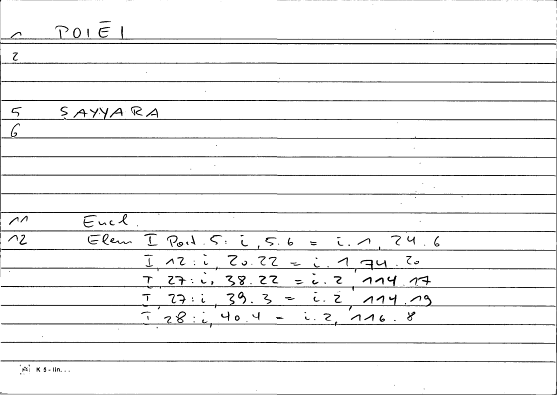 1 POIĒI
2
5 ṢAYYARA
6
11 Eucl.
12 Elem I Post. 5: i, 5.6 = i.1, 24.6
I, 12: i, 20.22 = i.1, 74.20
I, 27: i, 38.22 = i.2, 114.17
I, 27: i, 39.3 = i.2, 114.19
I, 28: i, 40.4 = i.2, 116.8
K 5 - lin...